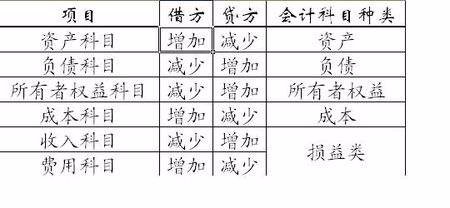 项目 借方 贷方 会计科目种类
资产科目 增加 减少 资产
负债科目 减少 增加 负债
所有者权益科目 减少 增加 所有者权益
成本科目 增加 减少 成本
收入科目 减少 增加 损益类
费用科目 增加 减少